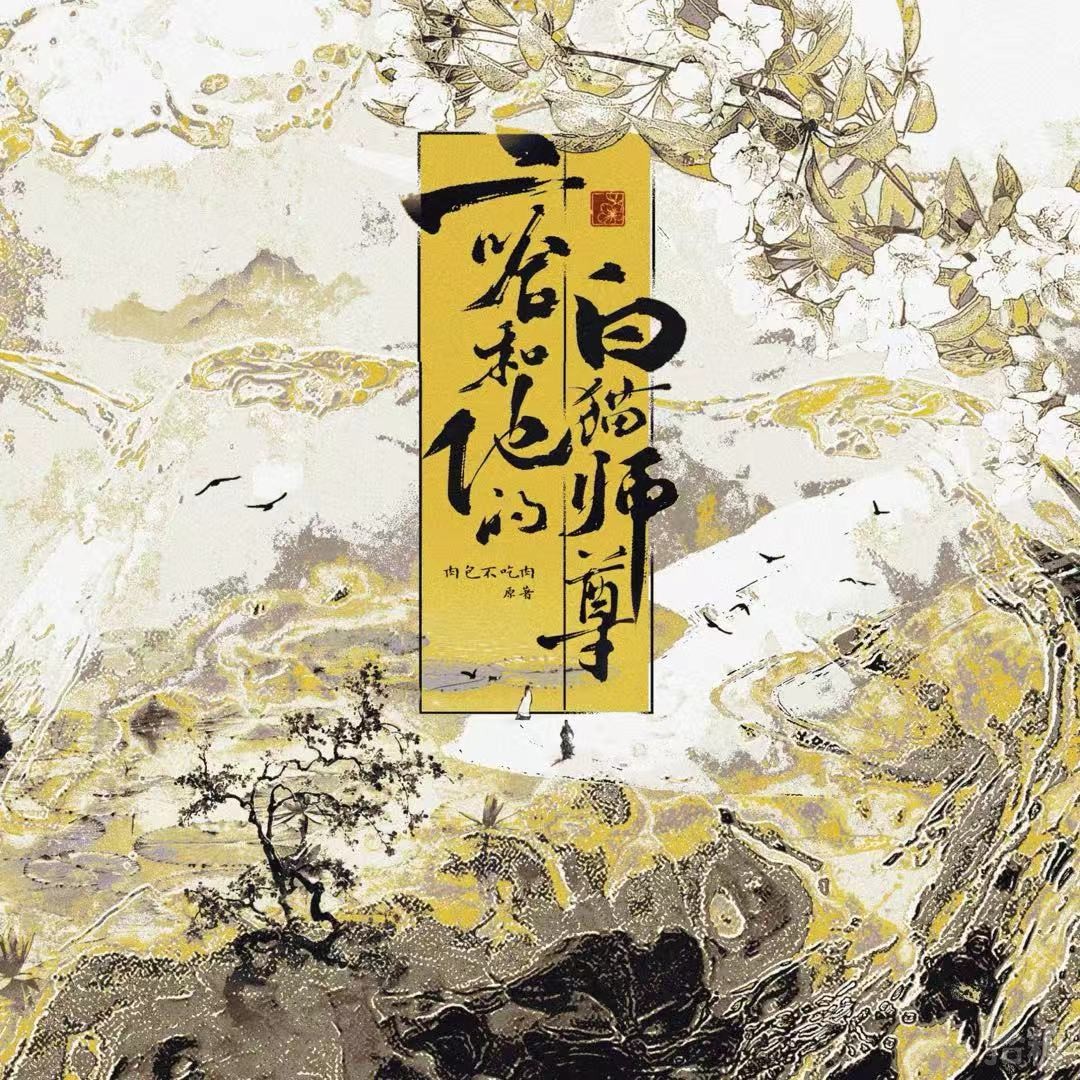 二哈和他的
白猫师尊
肉包不吃肉
原著